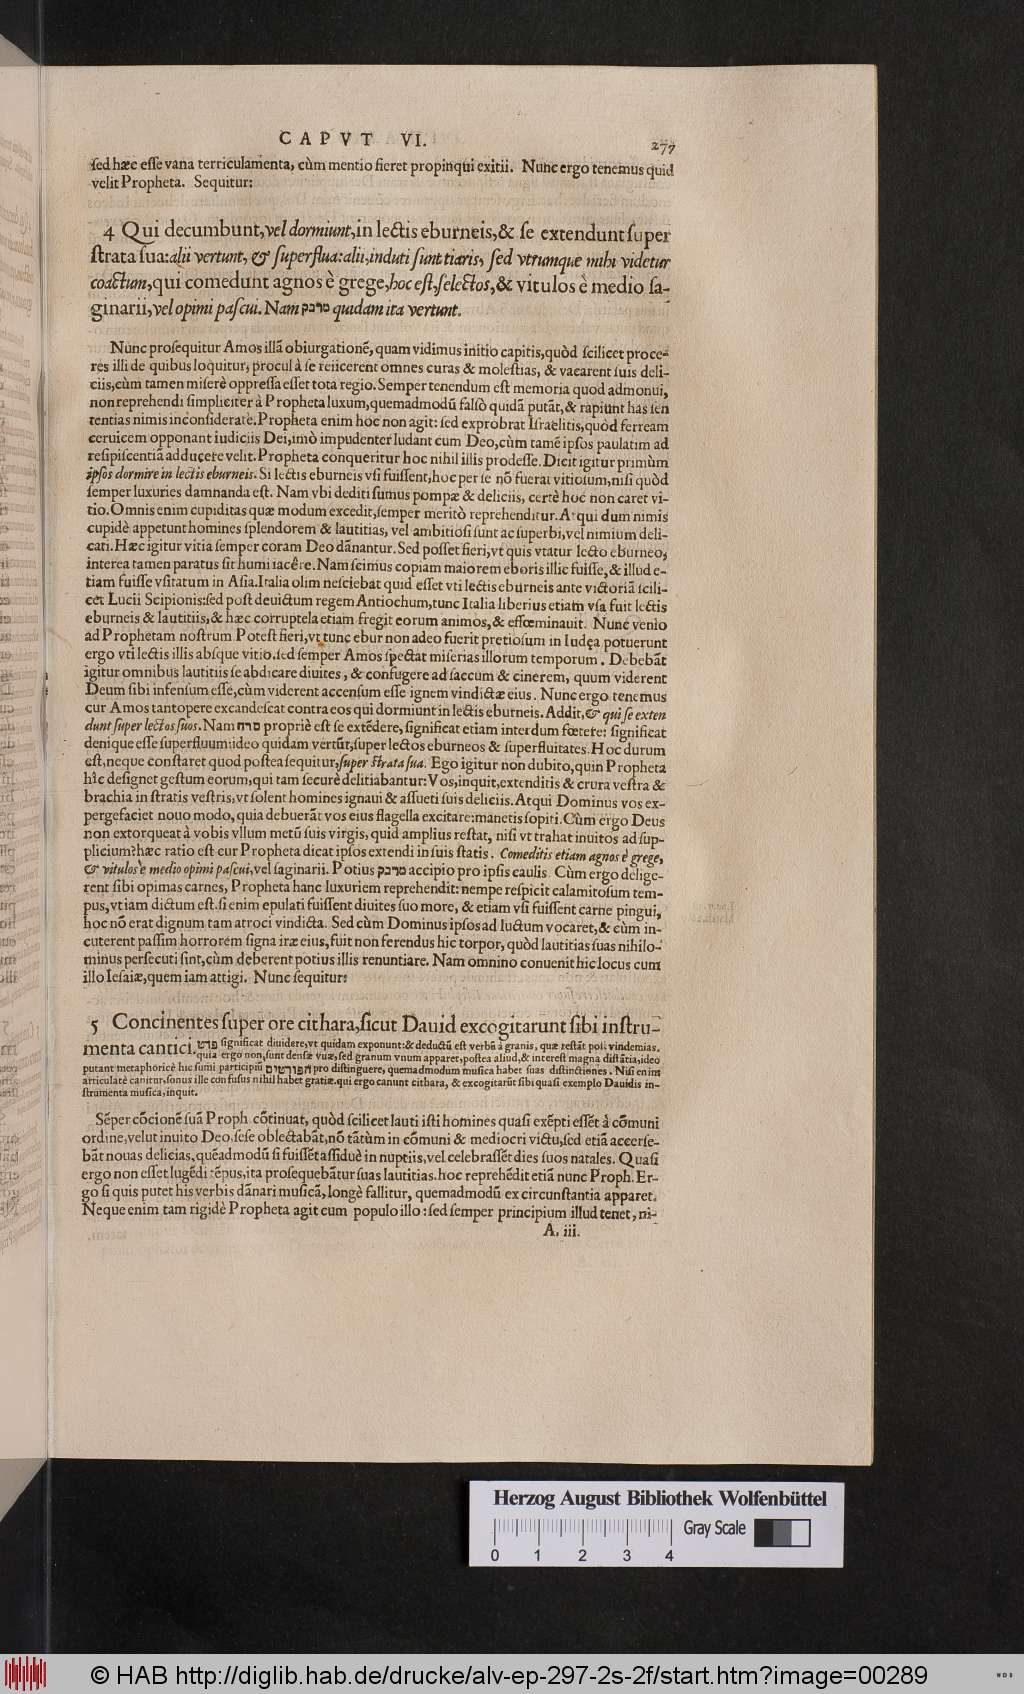 CAPVT VI. 277
ſed hæc eſſe vana terriculamenta, cùm mentio fieret propinqui exitii. Nunc ergo tenemus quid
velit Propheta. Sequitur:
4 Qui decumbunt, vel dormiunt, in lectis eburneis, & ſe extendunt ſuper
ſtrata ſua: alii vertunt, & ſuperflua: alii, induti ſunt tiaris, ſed vtrumque mihi videtur
coactum, qui comedunt agnos è grege, hoc eſt, ſelectos, & vitulos è medio ſa-
ginarii, vel opimi paſcui. Nam מרבק quidam ita vertunt.
Nunc proſequitur Amos illã obiurgationẽ, quam vidimus initio capitis, quòd ſcilicet proce-
res illi de quibus loquitur, procul à ſe reiicerent omnes curas & moleſtias, & vacarent ſuis deli-
ciis, cùm tamen miſerè oppreſſa eſſet tota regio. Semper tenendum eſt memoria quod admonui,
non reprehendi ſimpliciter à Propheta luxum, quemadmodũ falſò quidã putãt, & rapiunt has ſen
tentias nimis inconſideratè. Propheta enim hoc non agit: ſed exprobrat Iſraelitis, quòd ferream
ceruicem opponant iudiciis Dei, imò impudenter ludant cum Deo, cùm tamẽ ipſos paulatim ad
reſipiſcentiã adducere velit. Propheta conqueritur hoc nihil illis prodeſſe. Dicit igitur primùm
ipſos dormire in lectis eburneis. Si lectis eburneis vſi fuiſſent, hoc per ſe nõ fuerat vitioſum, niſi quòd
ſemper luxuries damnanda eſt. Nam vbi dediti ſumus pompæ & deliciis, certè hoc non caret vi-
tio. Omnis enim cupiditas quæ modum excedit, ſemper meritò reprehenditur. Atqui dum nimis
cupidè appetunt homines ſplendorem & lautitias, vel ambitioſi ſunt ac ſuperbi, vel nimium deli-
cati. Hæc igitur vitia ſemper coram Deo dãnantur. Sed poſſet fieri, vt quis vtatur lecto eburneo,
interea tamen paratus ſit humi iacêre. Nam ſcimus copiam maiorem eboris illic fuiſſe, & illud e-
tiam fuiſſe vſitatum in Aſia. Italia olim neſciebat quid eſſet vti lectis eburneis ante victoriã ſcili-
cet Lucii Scipionis: ſed poſt deuictum regem Antiochum, tunc Italia liberius etiam vſa fuit lectis
eburneis & lautitiis, & hæc corruptela etiam fregit eorum animos, & effœminauit. Nunc venio
ad Prophetam noſtrum Poteſt fieri, vt tunc ebur non adeo fuerit pretioſum in Iudęa potuerunt
ergo vti lectis illis abſque vitio. ſed ſemper Amos ſpectat miſerias illorum temporum. Debebãt
igitur omnibus lautitiis ſe abdicare diuites, & confugere ad ſaccum & cinerem, quum viderent
Deum ſibi infenſum eſſe, cùm viderent accenſum eſſe ignem vindictæ eius. Nunc ergo tenemus
cur Amos tantopere excandeſcat contra eos qui dormiunt in lectis eburneis. Addit, & qui ſe exten
dunt ſuper lectos ſuos. Nam סרח propriè eſt ſe extẽdere, ſignificat etiam interdum fœtere: ſignificat
denique eſſe ſuperfluum: ideo quidam vertũt, ſuper lectos eburneos & ſuperfluitates. Hoc durum
eſt, neque conſtaret quod poſtea ſequitur, ſuper ſtrata ſua. Ego igitur non dubito, quin Propheta
hîc deſignet geſtum eorum, qui tam ſecurè delitiabantur: Vos, inquit, extenditis & crura veſtra &
brachia in ſtratis veſtris, vt ſolent homines ignaui & aſſueti ſuis deliciis. Atqui Dominus vos ex-
pergefaciet nouo modo, quia debuerãt vos eius flagella excitare: manetis ſopiti. Cùm ergo Deus
non extorqueat à vobis vllum metũ ſuis virgis, quid amplius reſtat, niſi vt trahat inuitos ad ſup-
plicium? hæc ratio eſt cur Propheta dicat ipſos extendi in ſuis ſtatis. Comeditis etiam agnos è grege,
& vitulos è medio opimi paſcui, vel ſaginarii. Potius מרבק accipio pro ipſis caulis. Cùm ergo delige-
rent ſibi opimas carnes, Propheta hanc luxuriem reprehendit: nempe reſpicit calamitoſum tem-
pus, vt iam dictum eſt. ſi enim epulati fuiſſent diuites ſuo more, & etiam vſi fuiſſent carne pingui,
hoc nõ erat dignum tam atroci vindicta. Sed cùm Dominus ipſos ad luctum vocaret, & cùm in-
cuterent paſſim horrorem ſigna iræ eius, fuit non ferendus hic torpor, quòd lautitias ſuas nihilo-
minus perſecuti ſint, cùm deberent potius illis renuntiare. Nam omnino conuenit hic locus cum
illo Ieſaiæ, quem iam attigi. Nunc ſequitur:
5 Concinentes ſuper ore cithara, ſicut Dauid excogitarunt ſibi inſtru-
menta cantici. פרט ſignificat diuidere, vt quidam exponunt: & deductũ eſt verbũ à granis, quæ reſtãt poſt vindemias.
quia ergo non, ſunt denſæ vuæ, ſed granum vnum apparet, poſtea aliud, & intereſt magna diſtãtia, ideo
putant metaphoricè hic ſumi participiũ הפורטים pro diſtinguere, quemadmodum muſica habet ſuas diſtinctiones. Niſi enim
articulatè canitur, ſonus ille confuſus nihil habet gratiæ. qui ergo canunt cithara, & excogitarũt ſibi quaſi exemplo Dauidis in-
ſtrumenta muſica, inquit.
Sẽper cõcionẽ ſuã Proph. cõtinuat, quòd ſcilicet lauti iſti homines quaſi exẽpti eſſẽt à cõmuni
ordine, velut inuito Deo, ſeſe oblectabãt, nõ tãtùm in cõmuni & mediocri victu, ſed etiã accerſe-
bãt nouas delicias, quẽadmodũ ſi fuiſſẽt aſſiduè in nuptiis, vel celebraſſẽt dies ſuos natales. Quaſi
ergo non eſſet lugẽdi tẽpus, ita proſequebãtur ſuas lautitias. hoc reprehẽdit etiã nunc Proph. Er-
go ſi quis putet his verbis dãnari muſicã, longè fallitur, quemadmodũ ex circunſtantia apparet.
Neque enim tam rigidè Propheta agit cum populo illo: ſed ſemper principium illud tenet, ni-
A. iii.
Herzog August Bibliothek Wolfenbüttel
Gray Scale
0 1 2 3 4
© HAB http://diglib.hab.de/drucke/alv-ep-297-2s-2f/start.htm?image=00289